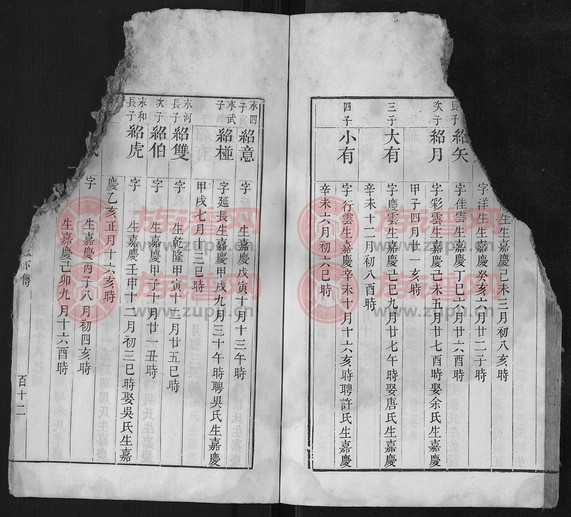 生嘉慶己未三月初八亥時
字洋生生嘉慶癸亥六月廿二子時
長子 紹矢
字佳雲生嘉慶丁巳六月廿六酉時
次子 紹月
字彩雲生嘉慶己未五月廿七酉時娶余氏生嘉慶
甲子四月廿一亥時
三子 大有
字慶雲生嘉慶己巳九月廿七午時娶唐氏生嘉慶
辛未十二月初八酉時
四子 小有
字行雲生嘉慶辛未十月十六亥時聘許氏生嘉慶
辛未六月初六巳時
永四子 紹意
字 生嘉慶戊寅十月十三午時
永武子 紹極
字延長生嘉慶甲戌九月三十午時聘吳氏生嘉慶
甲戌七月廿三巳時
永河長子 紹雙
字 生乾隆甲寅十二月廿五巳時
次子 紹伯
字 生嘉慶甲子十月廿一丑時
永和長子 紹虎
字 生嘉慶壬申十二月初三巳時娶吳氏生嘉
慶乙亥正月十六亥時
字 生嘉慶丙子八月初四亥時
字 生嘉慶己卯九月十六酉時
百十二
族譜网
www.zupu.cn